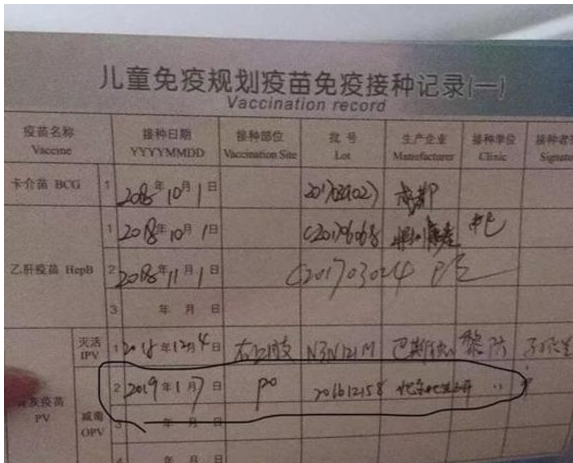 儿童免疫规划疫苗免疫接种记录(一)
Vaccination record
疫苗名称 接种日期 接种部位 批号 生产企业 接种单位 接种者
Vaccine YYYYMMDD Vaccination Site Lot Manufacturer Clinic Signatu
卡介苗 BCG 1 2018年10月1日 成都
乙肝疫苗 HepB 1 2018年10月1日
2 2018年11月1日 C201703024
3 年 月 日
灭活 IPV 1 2018年12月4日 N3N121M 巴斯德
灰疫苗 PV 减毒 OPV 2 2019年1月7日 po 201612158
3 年 月 日
4 年 月 日